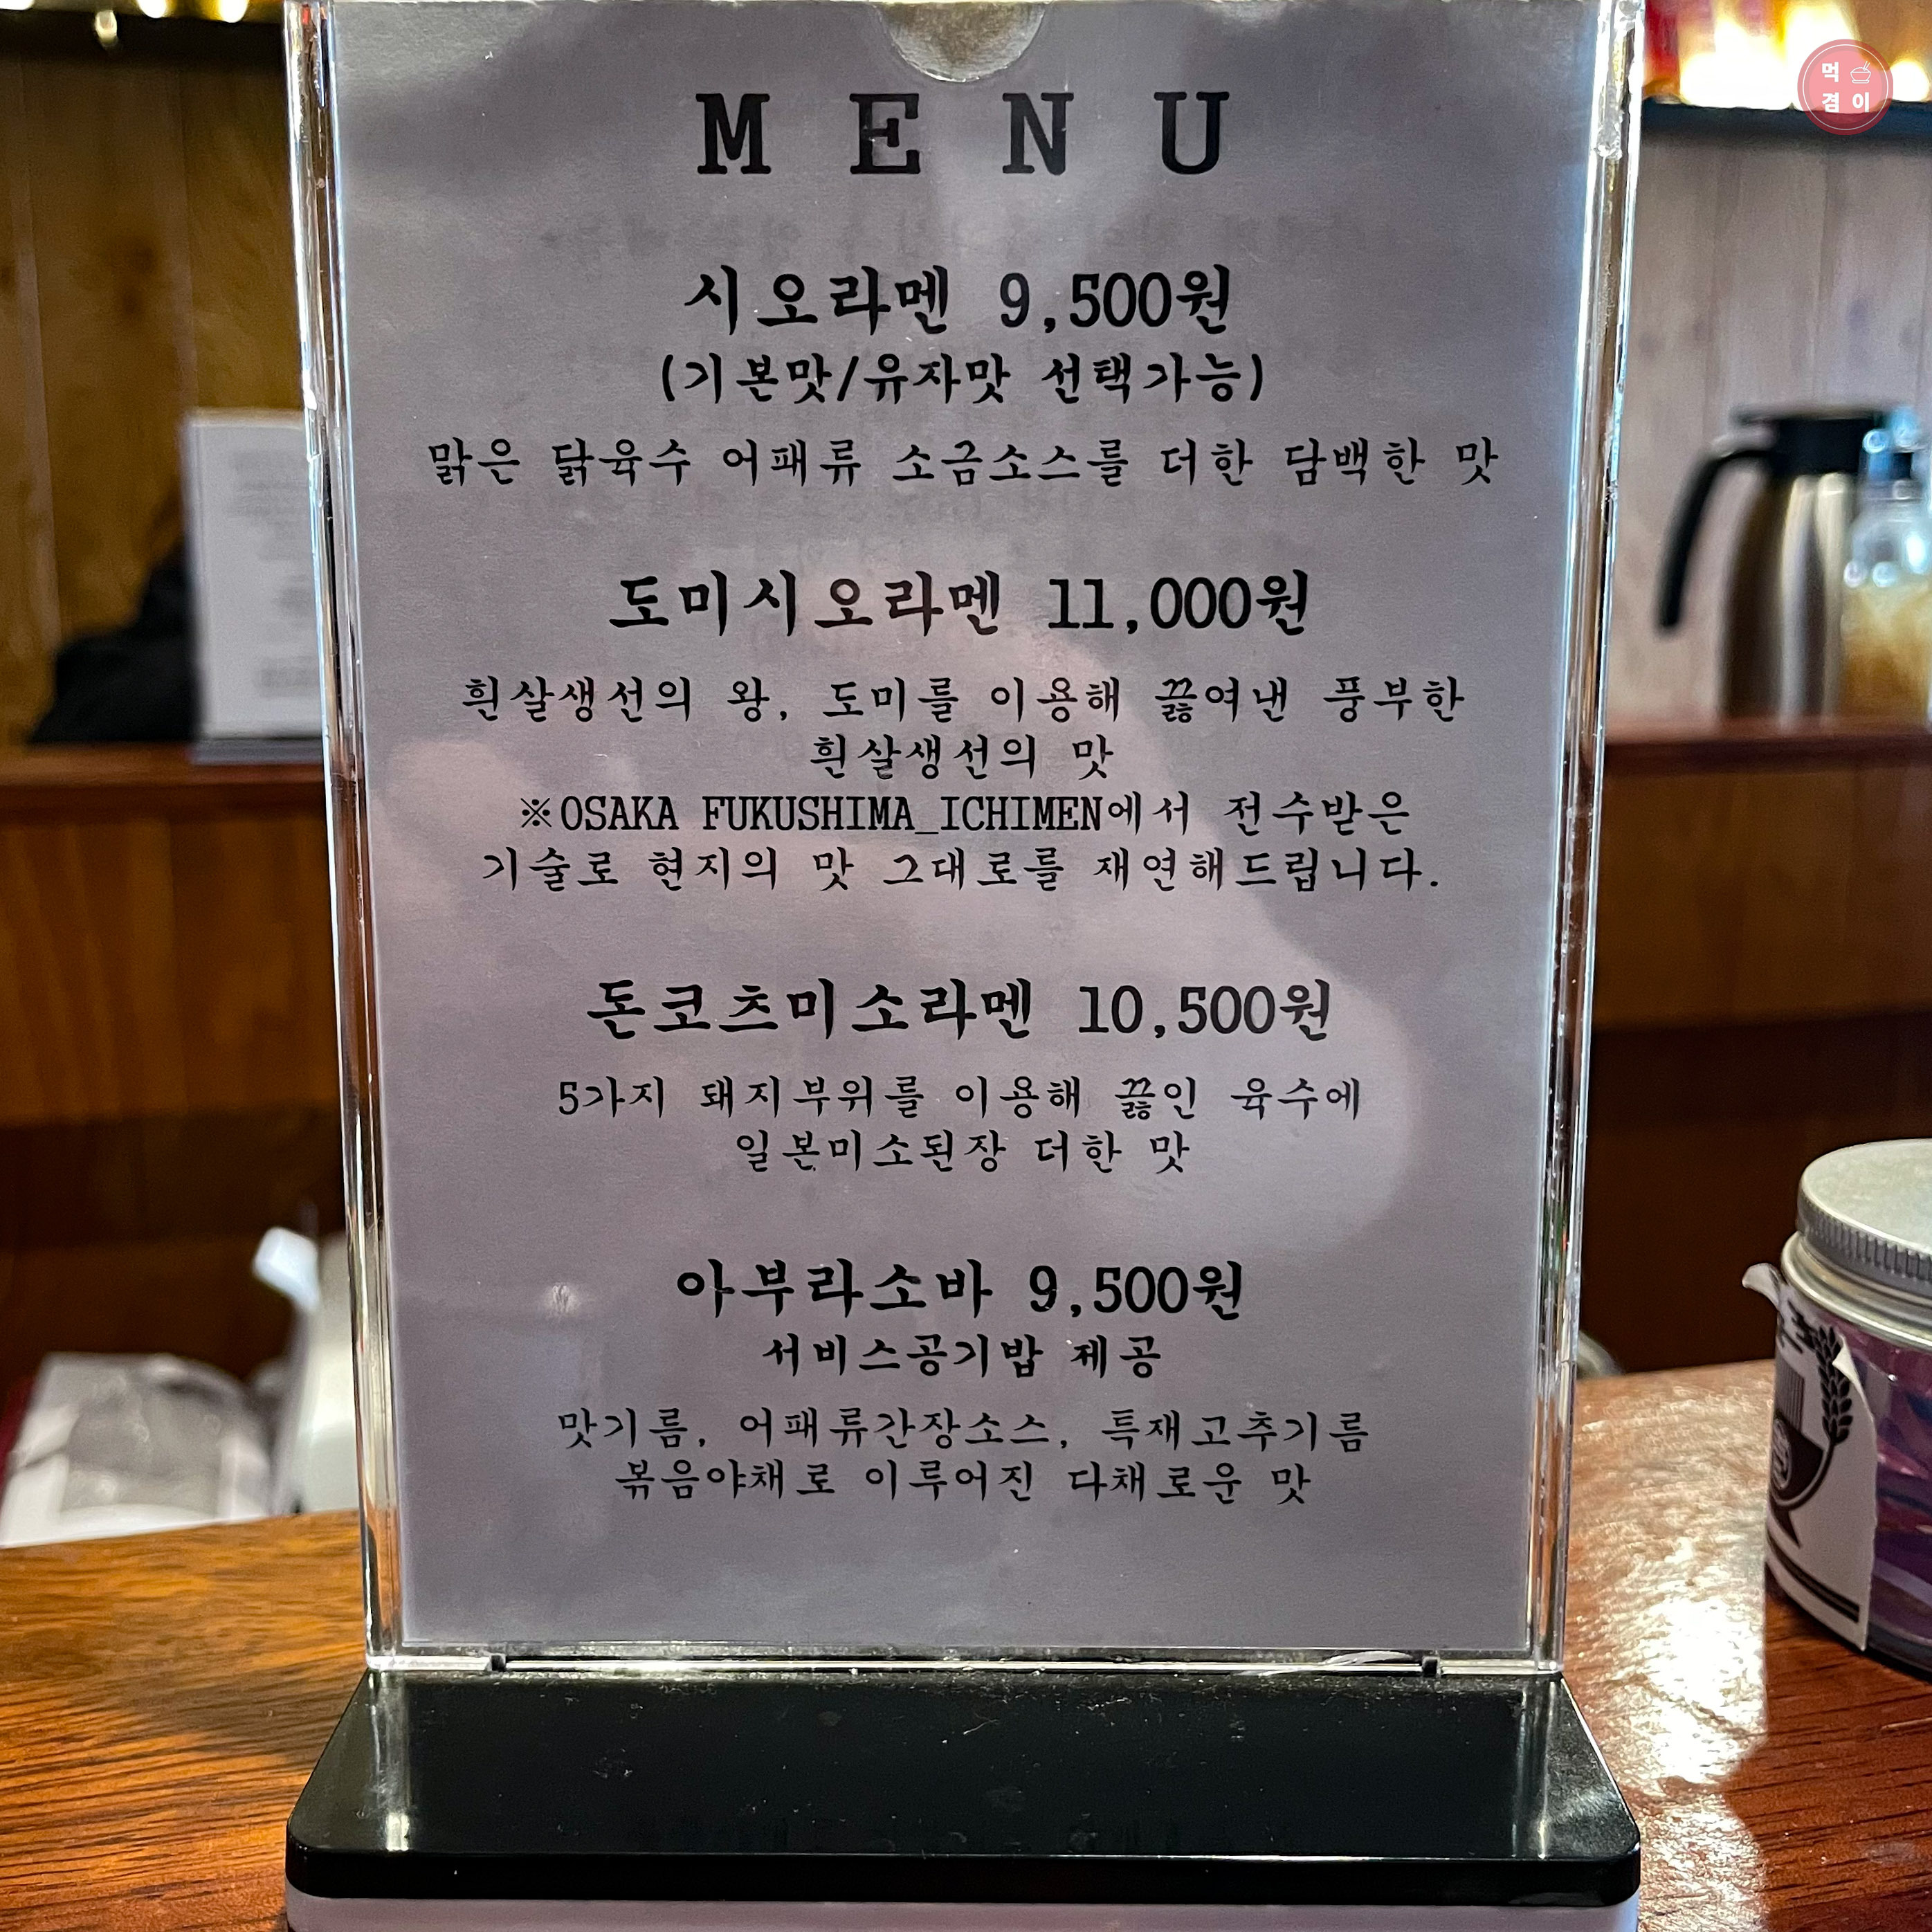 먹
겸이
MENU
시오라멘 9,500원
(기본맛/유자맛 선택가능)
맑은 닭육수 어패류 소금소스를 더한 담백한 맛
도미시오라멘 11,000원
흰살생선의 왕, 도미를 이용해 끓여낸 풍부한
흰살생선의 맛
※OSAKA FUKUSHIMA_ICHIMEN에서 전수받은
기술로 현지의 맛 그대로를 재연해드립니다.
돈코츠미소라멘 10,500원
5가지 돼지부위를 이용해 끓인 육수에
일본미소된장 더한 맛
아부라소바 9,500원
서비스공기밥 제공
맛기름, 어패류간장소스, 특재고추기름
볶음야채로 이루어진 다채로운 맛